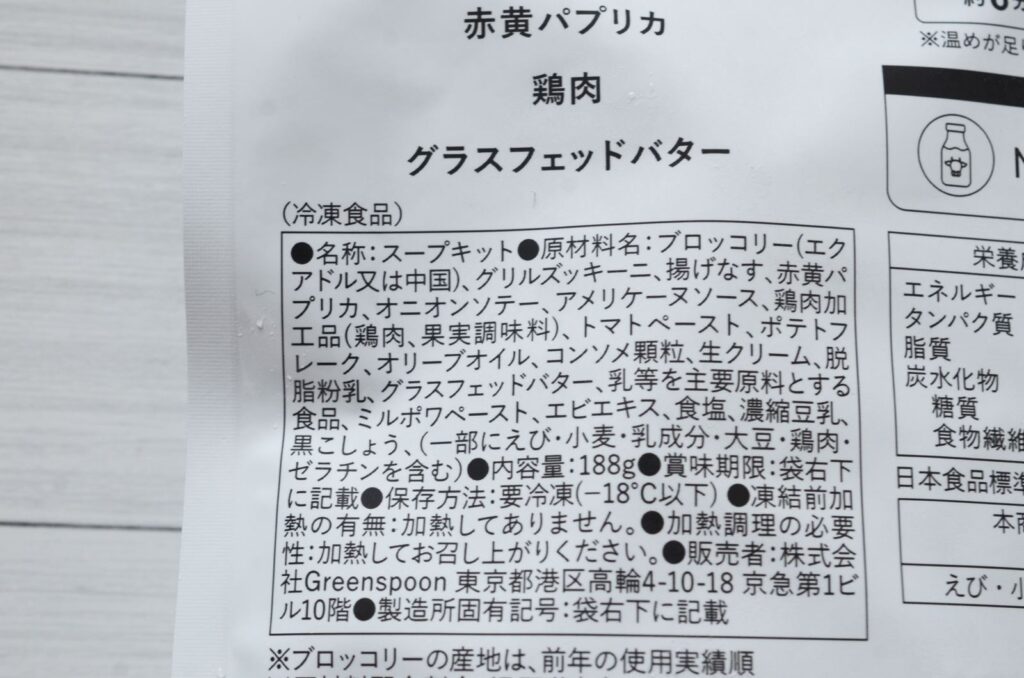 赤黄パプリカ
鶏肉
グラスフェッドバター
(冷凍食品)
●名称:スープキット●原材料名:ブロッコリー(エク
アドル又は中国)、グリルズッキーニ、揚げなす、赤黄パ
プリカ、オニオンソテー、アメリケーヌソース、鶏肉加
工品(鶏肉、果実調味料)、トマトペースト、ポテトフ
レーク、オリーブオイル、コンソメ顆粒、生クリーム、脱
脂粉乳、グラスフェッドバター、乳等を主要原料とする
食品、ミルポワペースト、エビエキス、食塩、濃縮豆乳、
黒こしょう、(一部にえび・小麦・乳成分・大豆・鶏肉・
ゼラチンを含む)●内容量:188g●賞味期限:袋右下
に記載●保存方法:要冷凍(−18℃以下)●凍結前加
熱の有無:加熱してありません。●加熱調理の必要
性:加熱してお召し上がりください。●販売者:株式会
社Greenspoon 東京都港区高輪4-10-18 京急第1ビ
ル10階●製造所固有記号:袋右下に記載
※ブロッコリーの産地は、前年の使用実績順
※温めが足
栄養
エネルギー
タンパク質
脂質
炭水化物
糖質
食物繊維
日本食品標準
本
えび・小